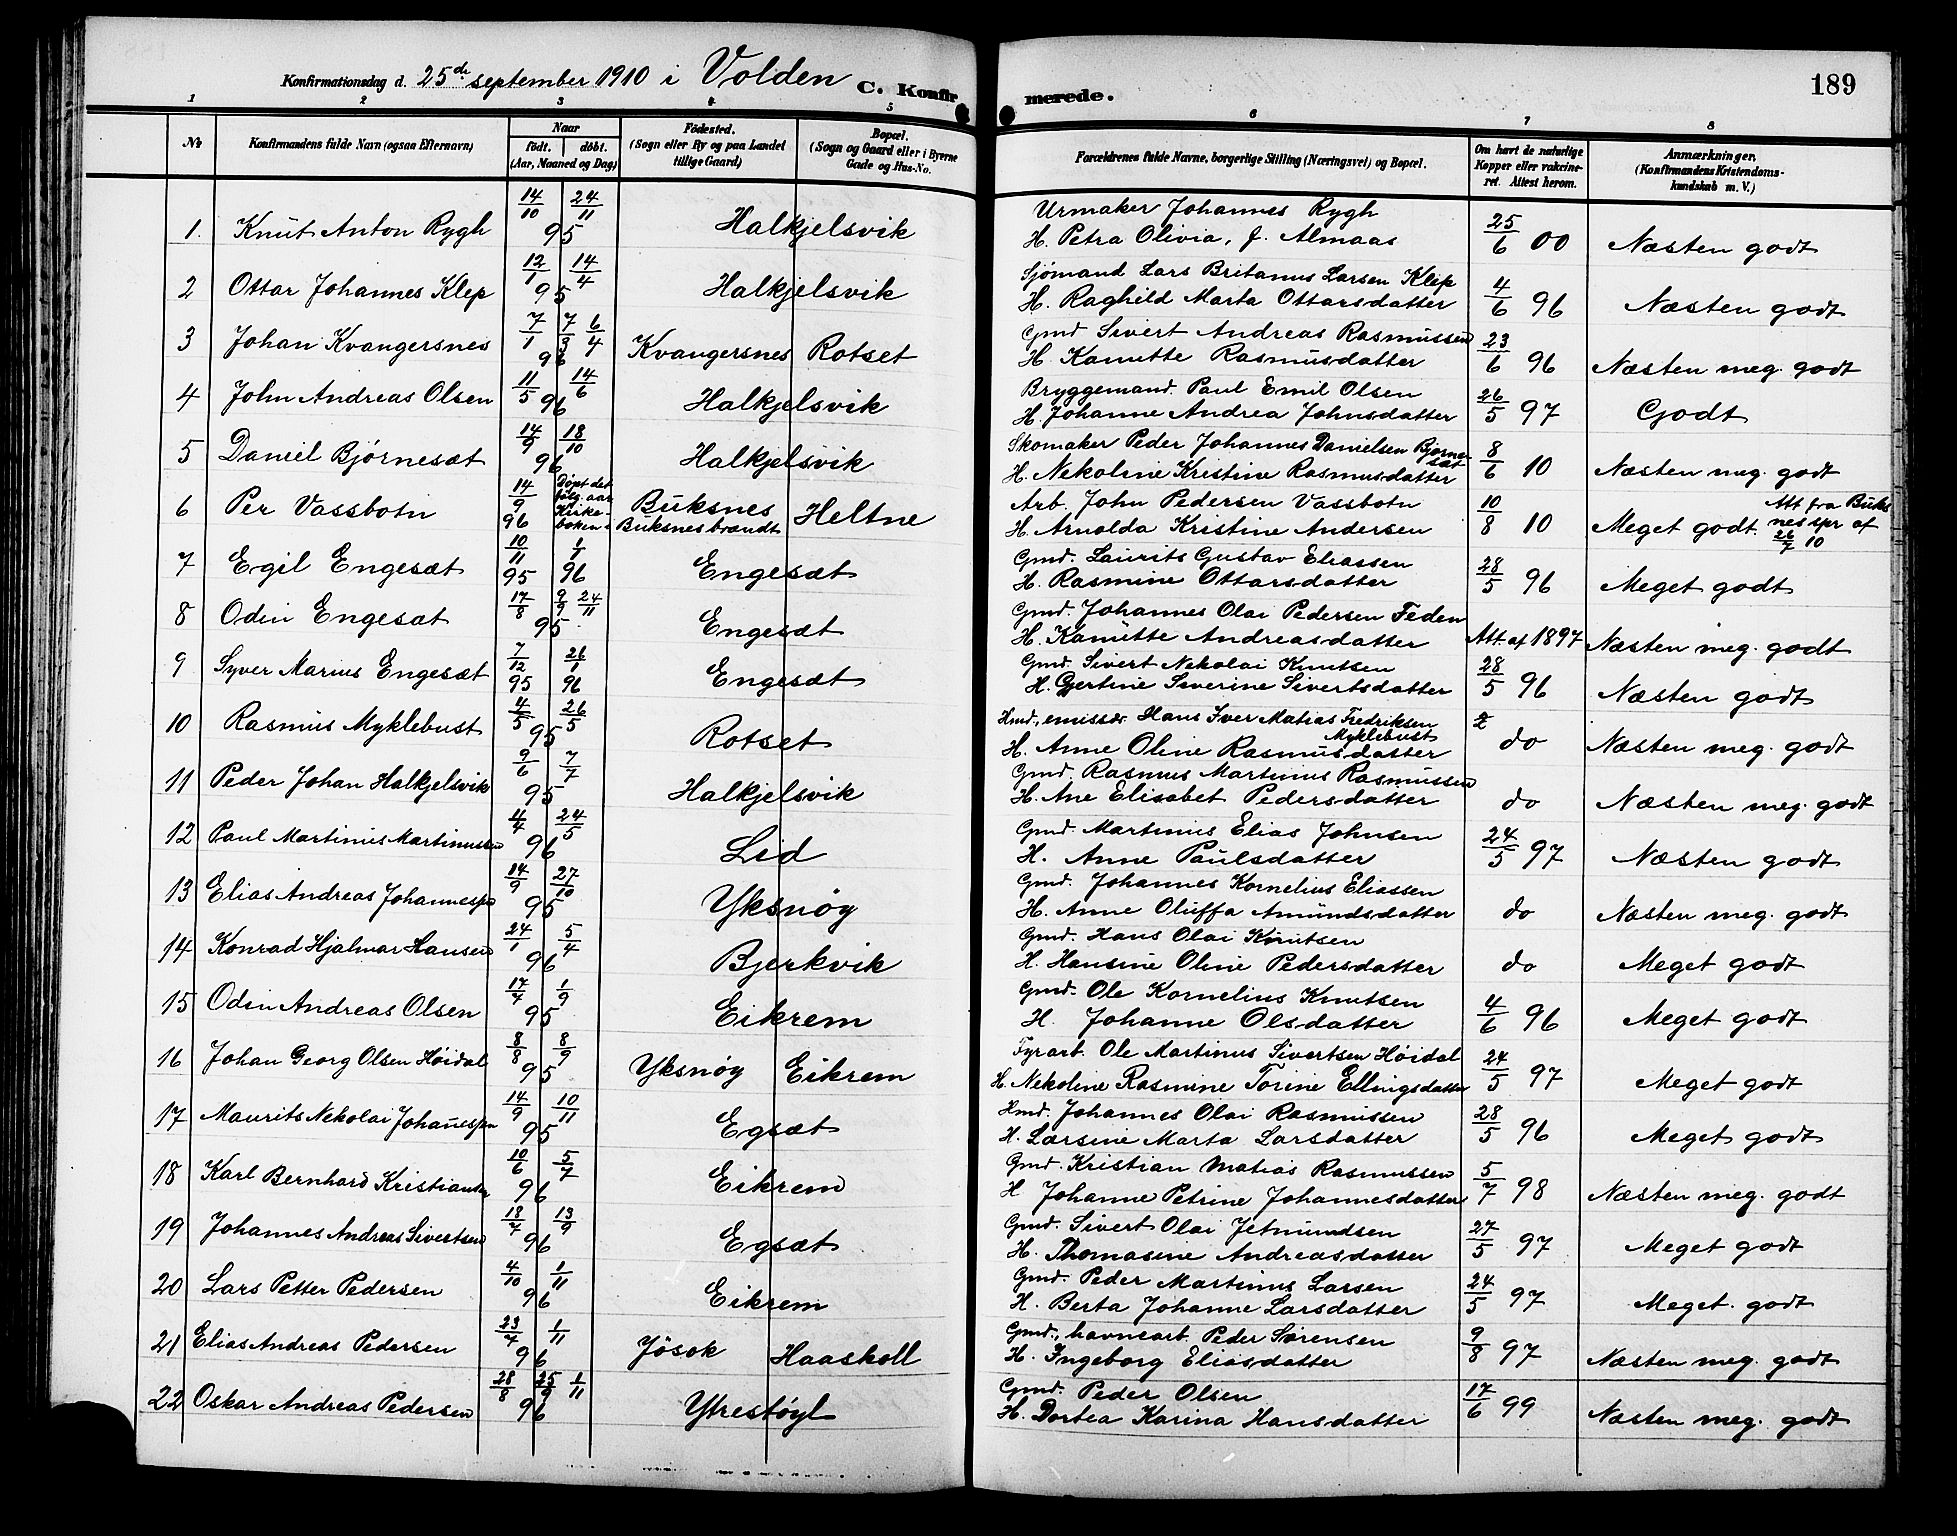 Konfirmationsdag d. 25de september 1910 i Volden C. Konfirmerede. 189
1 2 3 4 5 6 7 8
No Konfirmandens fulde Navn (ogsaa Efternavn) Naar født. døbt. (Aar, Maaned og Dag) Fødested. (Sogn eller By og paa Landet tillige Gaard) Bopæl. (Sogn og Gaard eller i Byerne Gade og Hus-No. Forældrenes fulde Navne, borgerlige Stilling (Næringsvei) og Bopæl. Om havt de naturlige Kopper eller vakcineret. Attest herom. Anmærkninger. (Konfirmandens Kristendomskundskab m. V.)
1. Knut Anton Rygh 14/10 24/11 95 Halkjelsvik Urmaker Johannes Rygh
H. Petra Olivia, f. Almaas 25/6 00 Næsten godt
2 Ottar Johannes Klep 12/1 14/4 95 Halkjelsvik Sjømand Lars Britanus Larsen Klep
H. Raghild Marta Ottarsdatter 4/6 96 Næsten godt
3 Johan Kvangersnes 7/1 7/3 6/4 96 Kvangersnes Rotset Gmd Sivert Andreas Rasmussen
H. Kanutte Rasmusdatter 23/6 96 Næsten meg. godt
4 John Andreas Olsen 11/5 14/6 96 Halkjelsvik Bryggemand. Paul Emil Olsen
H. Johanne Andrea Johnsdatter 26/5 97 Godt
5 Daniel Bjørnesæt 14/9 18/10 96 Halkjelsvik Skomaker Peder Johannes Danielsen Bjørnesæt
H. Nekoline Kristine Rasmusdatter 8/6 10 Næsten meg. godt
6 Per Vassbotn 14/9 96 Døpt det følg. aar Kirkeboken Buksnes Buksnesbrændt Heltne Arb. John Pedersen Vassbotn
H. Arnolda Kristine Andersen 10/8 10 Meget godt. Att fra Buksnes spr af 26/7 10
7 Egil Engesæt 10/11 95 1/1 96 Engesæt Gmd. Laurits Gustav Eliassen
H. Rasmine Ottarsdatter 28/5 96 Meget godt
8 Odin Engesæt 17/8 9/9 24/11 95 Engesæt Gmd. Johannes Olai Pedersen Feden
H. Kanutte Andreasdatter Att. af 1897 Næsten meg. godt
9 Syver Marius Engesæt 7/12 95 26/1 96 Engesæt Gmd. Sivert Nekolai Knutsen
H. Gjertine Siverine Sivertsdatter 28/5 96 Næsten godt
10 Rasmus Myklebust 4/5 26/5 95 Rotset Hmd., emissær Hans Iver Matias Fredriksen Myklebust
H. Anne Oline Rasmusdatter do Næsten meg. godt
11 Peder Johan Halkjelsvik 9/6 7/7 95 Halkjelsvik Gmd. Rasmus Martinus Rasmussen
H. Ane Elisabet Pedersdatter do Næsten meg. godt
12 Paul Martinus Martinussen 4/4 24/5 96 Lid Gmd. Martinus Elias Johnsen
H. Anne Paulsdatter 24/5 97 Næsten godt
13 Elias Andreas Johannesen 14/9 27/10 95 Yksnøy Gmd. Johannes Kornelius Eliassen
H. Anne Oluffa Amundsdatter do Næsten meg. godt
14 Konrad Hjalmar Hansen 24/1 5/4 96 Bjerkvik Gmd. Hans Olai Knutsen
H. Hansine Oline Pedersdatter do Meget godt
15 Odin Andreas Olsen 17/7 1/9 95 Eikrem Gmd. Ole Kornelius Knutsen
H. Johanne Olsdatter 4/6 96 Meget godt
16 Johan Georg Olsen Høidal 8/8 8/9 95 Yksnøy Eikrem Fyrarb. Ole Martinus Sivertsen Høidal
H. Nekoline Rasmine Torine Ellingsdatter 24/5 97 Meget godt
17 Maurits Nekolai Johannessen 14/9 10/11 95 Egsæt Hmd. Johannes Olai Rasmussen
H. Larsine Marta Larsdatter 28/5 96 Meget godt
18 Karl Bernhard Kristiansen 10/6 5/7 96 Eikrem Gmd. Kristian Matias Rasmussen
H Johanne Petrine Johannesdatter 5/7 98 Næsten meg. godt
19 Johannes Andreas Sivertsen 18/7 13/9 96 Egsæt Gmd. Sivert Olai Jetmundsen
H. Thomasine Andreasdatter 27/5 97 Meget godt
20 Lars Petter Pedersen 4/10 1/11 96 Eikrem Gmd. Peder Martinus Larsen
H. Berta Johanne Larsdatter 24/5 97 Meget godt
21 Elias Andreas Pedersen 23/7 1/11 96 Jøsok Haaskoll Gmd., havnearb. Peder Sørensen
H. Ingeborg Eliasdatter 9/8 97 Næsten meg. godt
22 Oskar Andreas Pedersen 28/8 25/9 1/11 96 Ytrestøyl Gmd. Peder Olsen
H. Dortea Karina Hansdatter 17/6 99 Næsten meg. godt